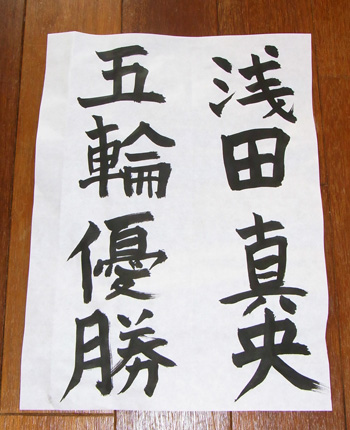 浅田真央
五輪優勝